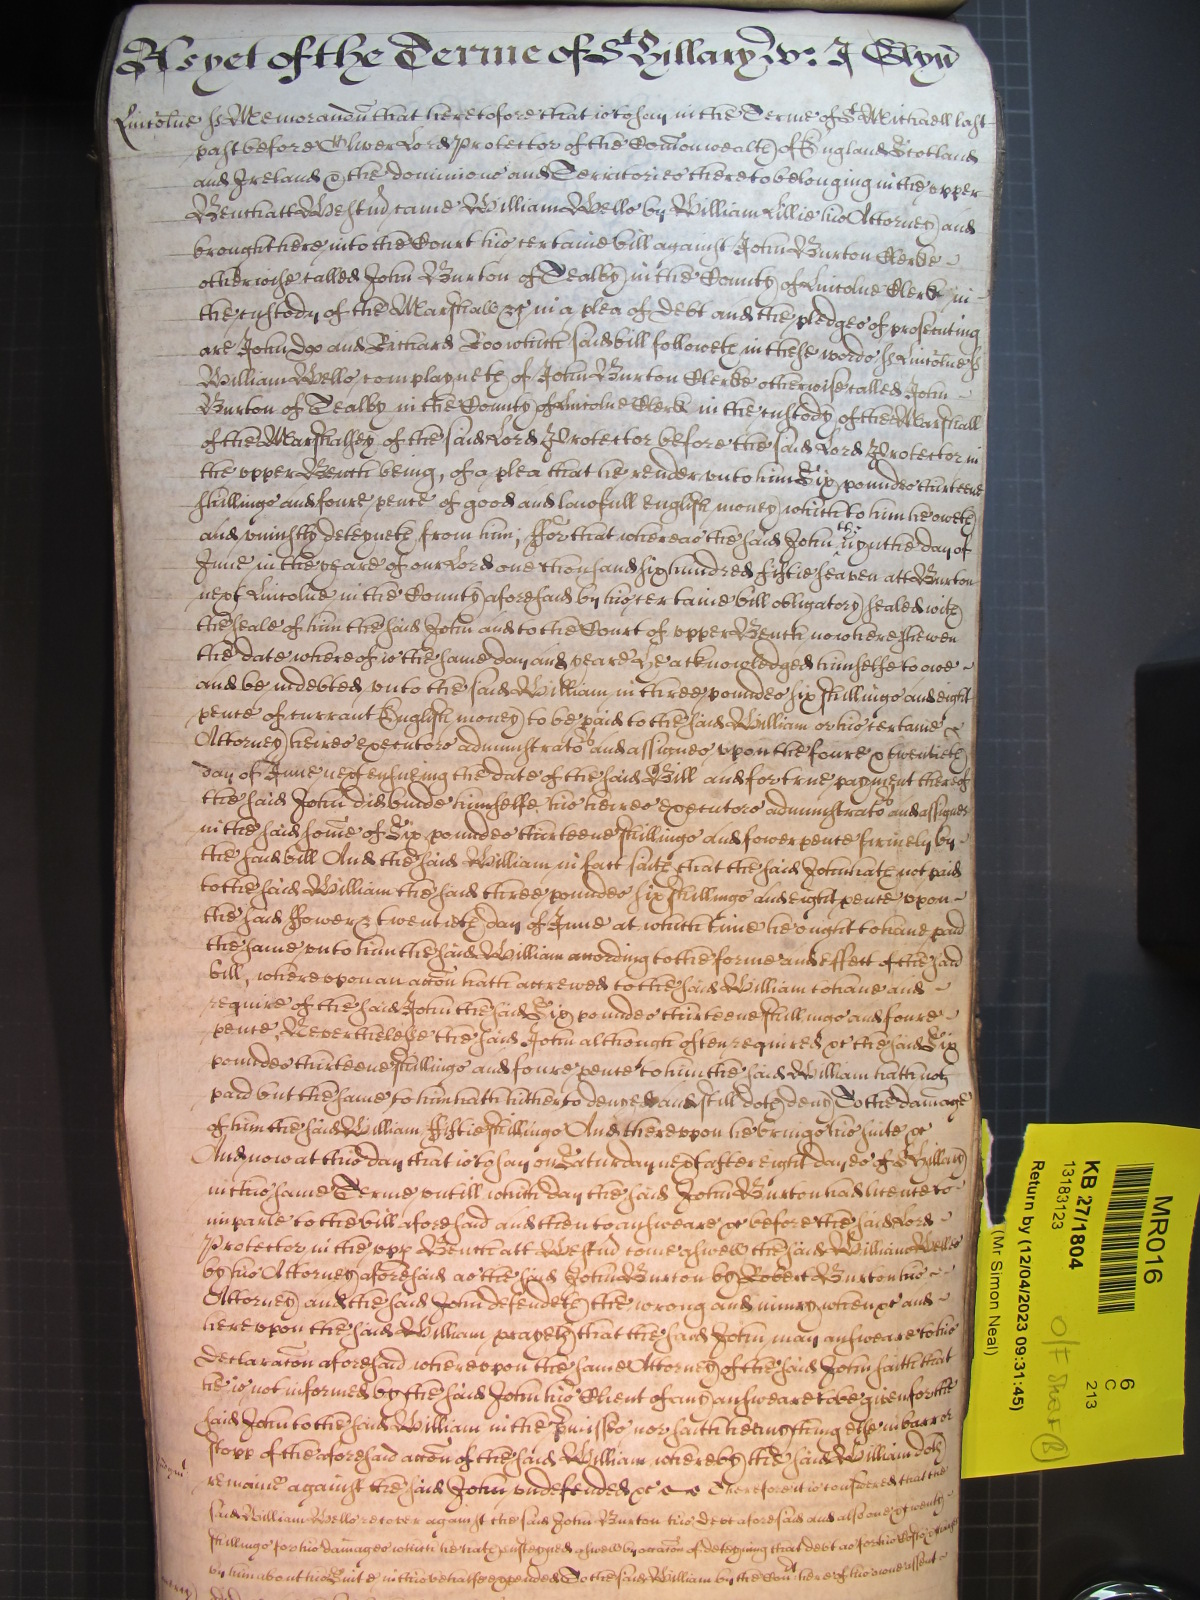 As yet of the Terme of St Hillary w: J Glyn
Lincolne ss Memorandu that heretofore that is to say in the Terme of St Michaell last
past before Oliver Lord Protector of the Comonwealth of England Scotland
and Ireland & the dominions and Territories thereto belonging in the upper
Bench att Westmr came William Wells by William Lillie his Attorney and
brought here into the Court his certaine bill against John Burton Clerke
otherwise called John Burton of Tealby in the County of Lincolne Clerk in
the custody of the Marshall &c in a plea of debt and the pledges of prosecuting
are John Doo and Richard Roo which said bill followeth in these words ss Lincolne ss
William Wells complayneth of John Burton Clerke otherwise called John
Burton of Tealby in the County of Lincolne Clerk in the custody of the Marshall
of the Marshalsey of the said Lord Protector before the said Lord Protector in
the upper Bench being, of a plea that he render unto him Six poundes thirteene
shillings and foure pence of good and lawfull english money which to him he oweth
and uniustly deteyneth from him, ffor that whereas the said John the day of
June in the yeare of our Lord one thousand six hundred fiftie seaven att Burton
next Lincolne in the County aforesaid by his certaine bill obligatory sealed with
the seale of him the said John and to the Court of upper Bench now here shewen
the date whereof is the same day and yeare he acknowledged himselfe to owe
and be indebted unto the said William in three poundes six shillings and eight
pence of currant English money to be paid to the said William or his certaine
Attorney heires executors administrators and assignes upon the foure & twentieth
day of June next ensueing the date of the said Bill and for true payment thereof
the said John did binde himselfe his heires executors administrators and assignes
in the said some of Six poundes thirteene shillings and fower pence firmely by
the said bill And the said William in fact saith that the said John hath not paid
to the said William the said three poundes six shillings and eight pence upon
the said ffower & twentieth day of June at which time he ought to have paid
the same unto him the said William according to the forme and effect of the said
bill, whereupon an accon hath accrewed to the said William to have and
require of the said John the said Six poundes thirteene shillings and foure
pence, Neverthelesse the said John although often required &c the said Six
poundes thirteene shillings and foure pence to him the said William hath not
paid but the same to him hath hitherto denyed and still doth deny To the damage
of him the said William ffiftie shillings And thereupon he brings his suite &c
And now at this day that is to say on Saturday next after eight dayes of St Hillary
in this same Terme untill which day the said John Burton had licence to
imparle to the bill aforesaid and then to answeare &c before the said Lord
Protector in the upp Bench att Westmr come aswell the said William Wells
by his Attorney aforesaid as the said John Burton by Robert Burton his
Attorney and the said John defendeth the wrong and iniury when &c and
hereupon the said William prayeth that the said John may answeare to his
declaracon aforesaid whereupon the same Attorney of the said John saith that
he is not informed by the said John his Client of any answeare to be given for the
said John to the said William in the pmisses nor saith he anything else in barr or
stopp of the aforesaid accon of the said William whereby the said William doth
remaine against the said John undefended &c Therefore it is considered that the
said William Wells recover against the said John Burton his debt aforesaid and also one & twenty
shillings for his damages which he hath susteyned aswell by occasion of deteyning that debt as for his costs & charges
by him about his Suite in this behalfe expended To the said William by the Court here of his owne assent
MR016
6
C
213
KB 27/1804
13183123
Return by (12/04/2023 09:31:45)
(Mr Simon Neal)